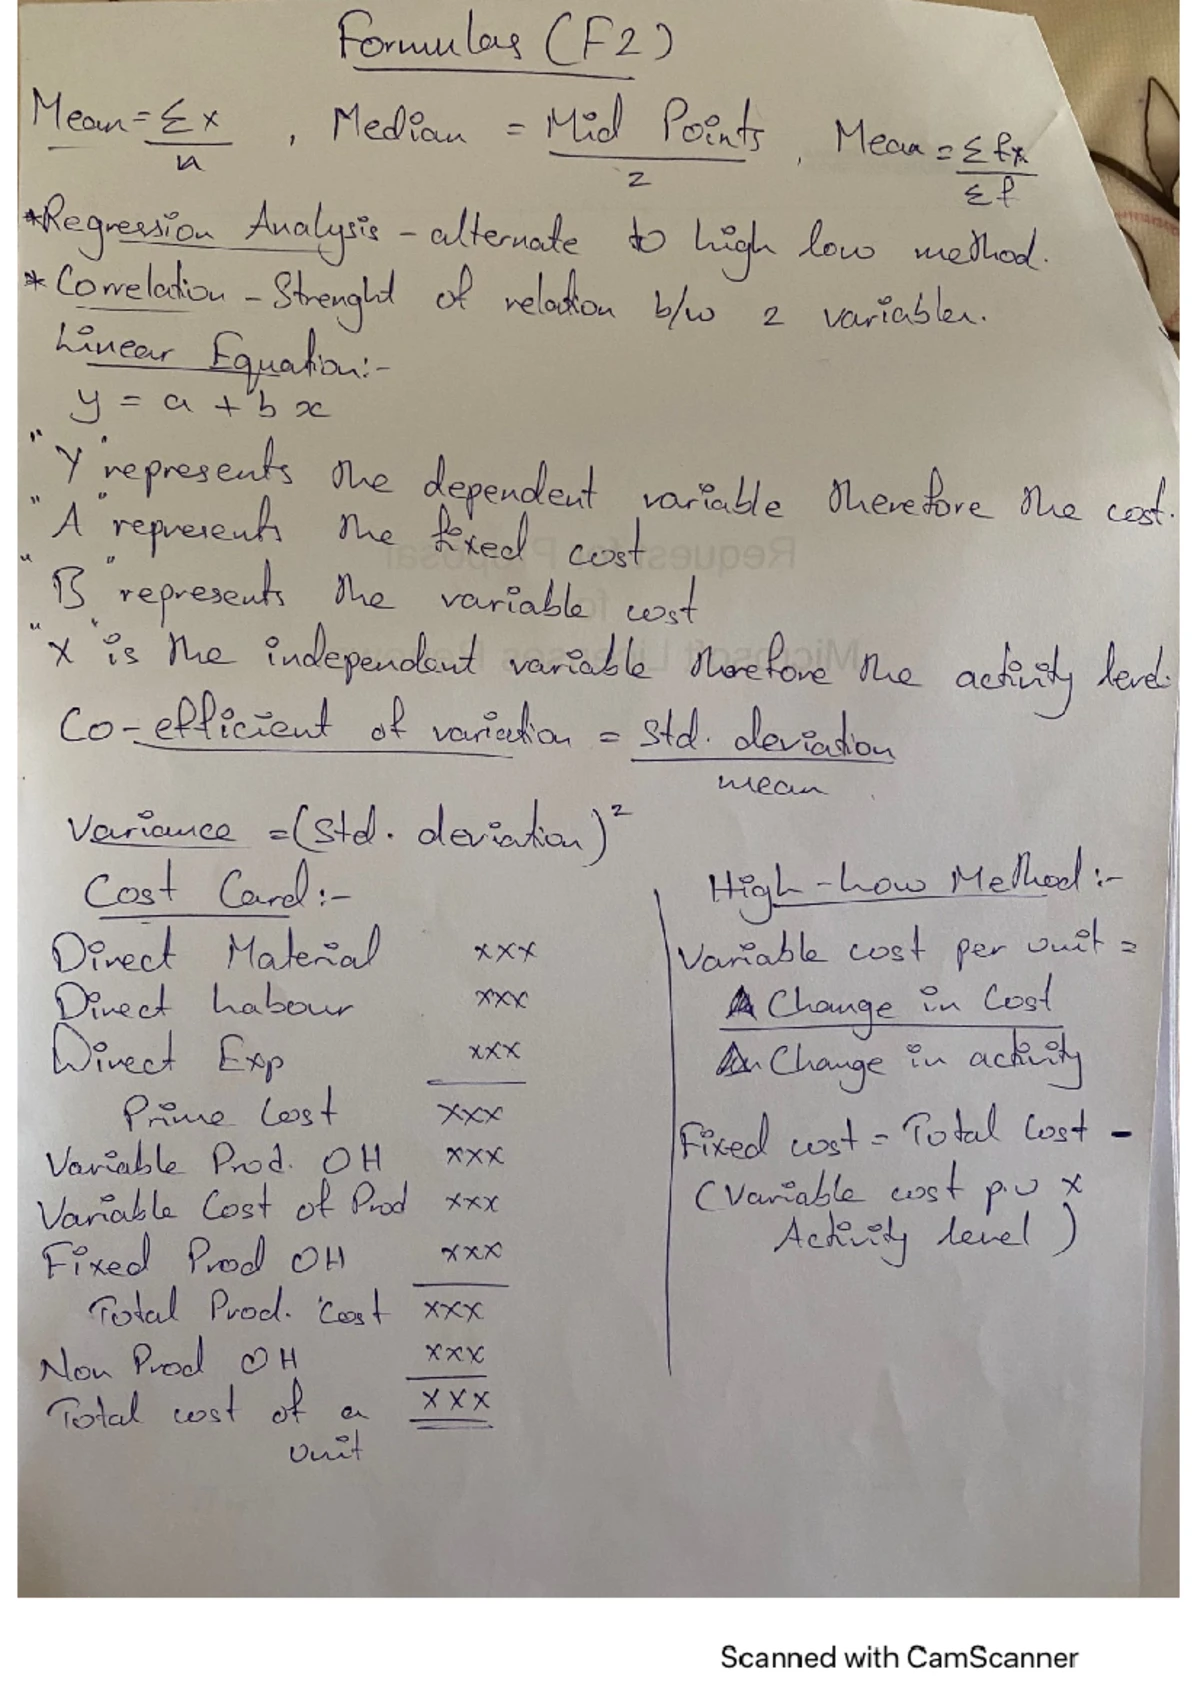 Formulas (F2)
Mean = Σx / n , Median = Mid Points / 2 , Mean = Σfx / Σf
*Regression Analysis - alternate to high low method.
* Correlation - Strenght of relation b/w 2 variables.
Linear Equation:-
y = a + bx
"Y" represents the dependent variable therefore the cost.
"A" represents the fixed cost
"B" represents the variable cost
"X" is the independent variable therefore the activity level.
Co-efficient of variation = Std. deviation / mean
Variance = (Std. deviation)²
Cost Card:-
Direct Material xxx
Direct Labour xxx
Direct Exp xxx
Prime Cost xxx
Variable Prod. OH xxx
Variable Cost of Prod xxx
Fixed Prod OH xxx
Total Prod. Cost xxx
Non Prod OH xxx
Total cost of a xxx
unit
High-Low Method:-
Variable cost per unit =
Change in Cost
Change in activity
Fixed cost = Total Cost -
(Variable cost p.u x
Activity level)
Request for Proposal
for
Microsoft Licenses
Scanned with CamScanner